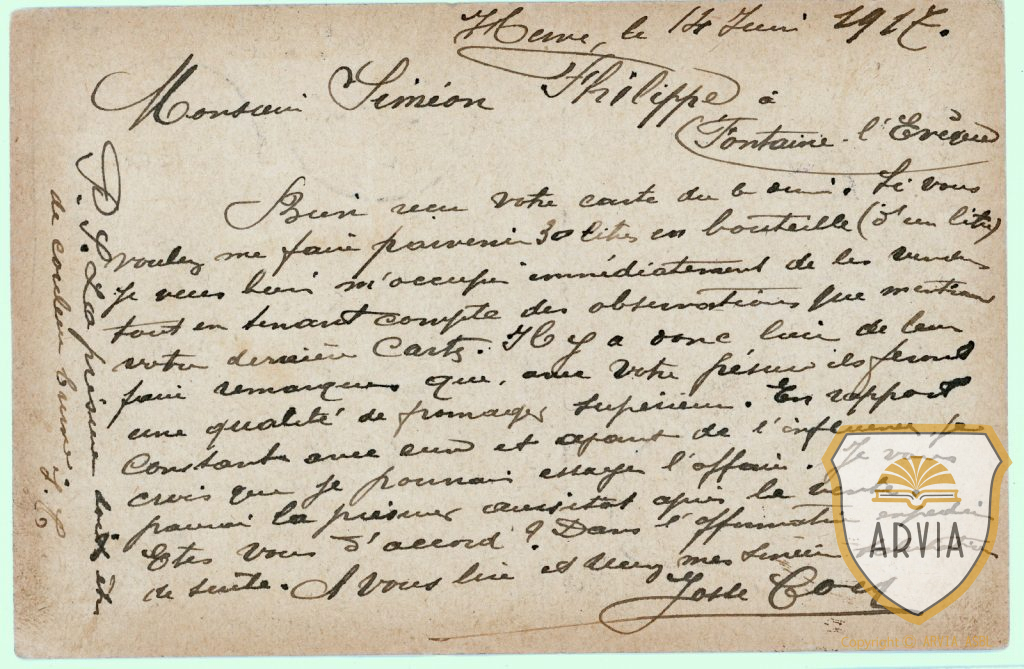 Herne, le 14 Juin 1917.
Monsieur Siméon Philippe à
Fontaine-l'Evêque
Bien reçu votre carte du 6 . Si vous
voulez me faire parvenir 30 litres en bouteille (d'un litre)
je veux bien m'occuper immédiatement de les vendre
tout en tenant compte des observations que mentionne
votre dernière carte. Il y a donc lieu de leur
faire remarquer que, avec votre présure ils feront
une qualité de fromages supérieure. En rapport
constant avec eux et ayant de l'influence je
crois que je pourrais essayer l'affaire. Je vous
la présure aussitôt après la vente.
Etes vous d'accord? Dans l'affirmative
de suite. A vous lire et mes
Josse
P.S. La présure doit être
de couleur brune. J.C.
ARVIA
copyright